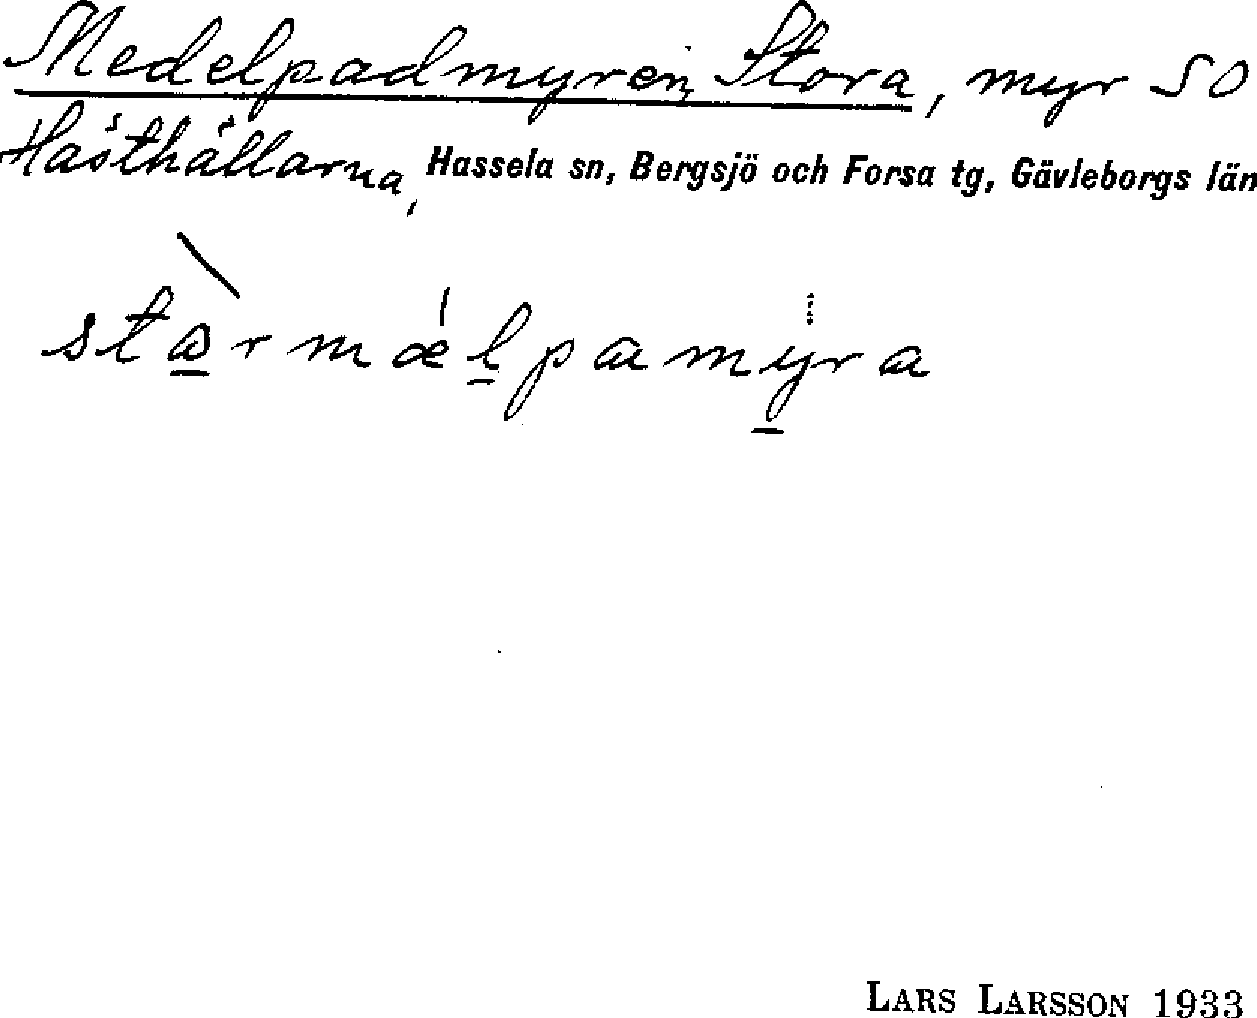 Medelpadmyren, Stora, myr SO
Hästhällarna, Hassela sn, Bergsjö och Forsa tg, Gävleborgs län
stɷ̱rmæḻpamy̱ra
LARS LARSSON 1933